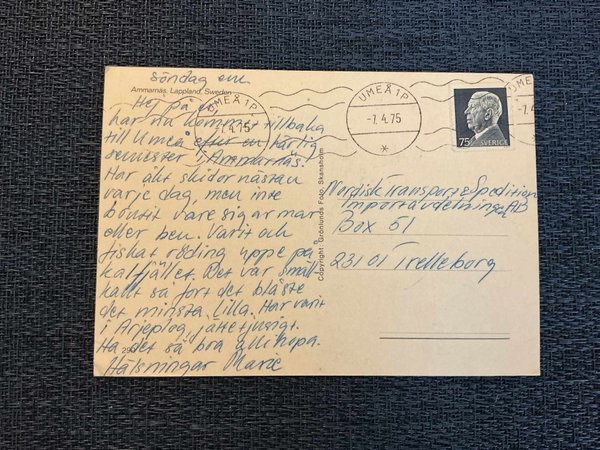 söndag em
Ammarnäs, Lappland, Sweden
Hej på er
har nu kommit tillbaka
till Umeå efter en härlig
semester i Ammarnäs!
Har åkt skidor nästan
varje dag, men inte
brutit vare sig armar
eller ben. Varit och
fiskat röding uppe på
kalfjället. Det var små-
kallt så fort det blåste
det minsta lilla. Har varit
i Arjeplog, jättetjusigt.
Ha det så bra allihopa.
Hälsningar Marie
Copyright: Grönlunds Foto, Skansholm
UMEÅ 1P
-7.4.75
UMEÅ 1P
-7.4.75
UMEÅ 1P
-7.4
75
SVERIGE
Nordisk Transport & Spedition
Importavdelningen AB
Box 61
23101 Trelleborg